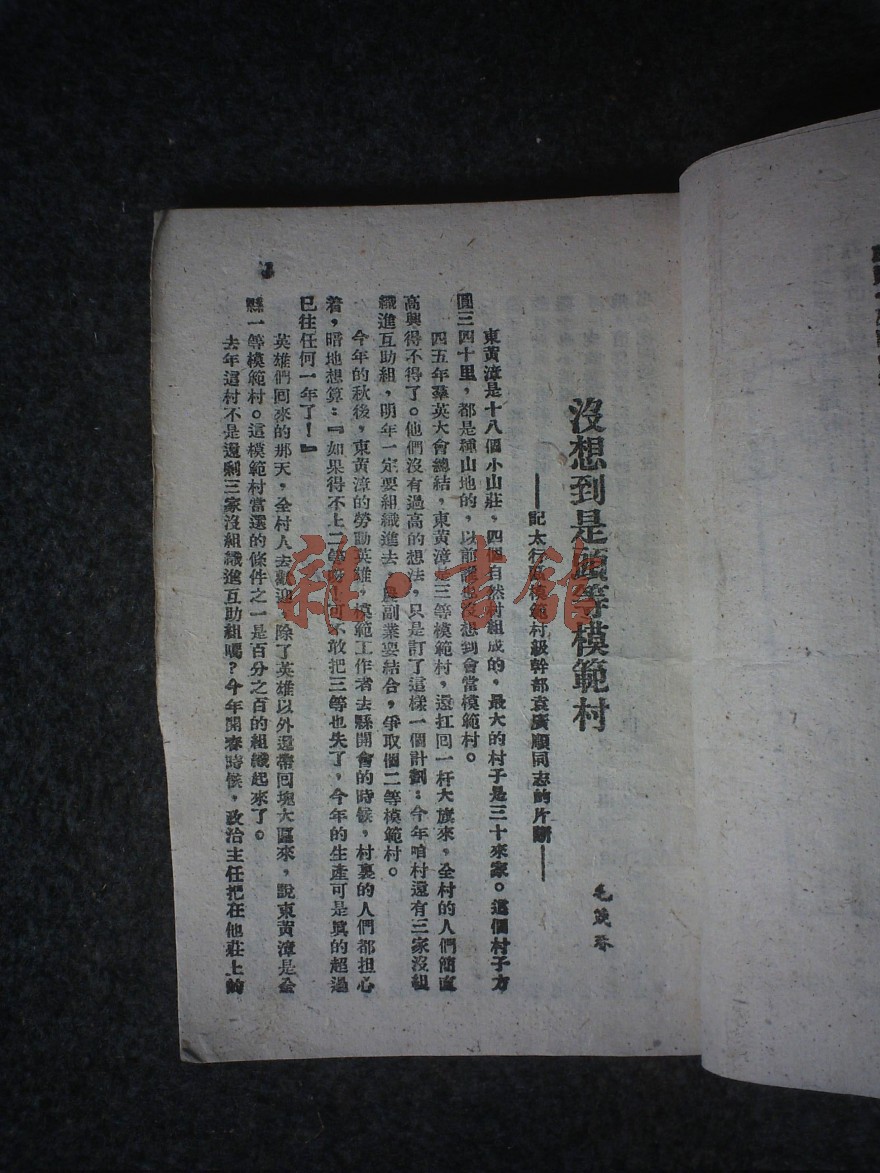 沒想到是頭等模範村
——記太行區模範村級幹部袁廣順同志的片斷——
毛茂春
東黃漳是十八個小山莊，四個自然村組成的，最大的村子是三十來家。這個村子方
圓三四十里，都是種山地的，以前誰也沒想到會當模範村。
四五年羣英大會總結，東黃漳是三等模範村，還扛回一杆大旗來，全村的人們簡直
高興得不得了。他們沒有過高的想法，只是訂了這樣一個計劃：今年咱村還有三家沒組
織進互助組，明年一定要組織進去，農副業要結合，爭取個二等模範村。
今年的秋後，東黃漳的勞動英雄，模範工作者去縣開會的時候，村裏的人們都担心
着，暗地想算：『如果得不上二等，可不敢把三等也失了，今年的生產可是眞的超過
已往任何一年了！』
英雄們回來的那天，全村人去歡迎，除了英雄以外還帶回塊大匾來，說東黃漳是全
縣一等模範村。這模範村當選的條件之一是百分之百的組織起來了。
去年這村不是還剩三家沒組織進互助組嗎？今年開春時候，政治主任把在他莊上的
雜·書館